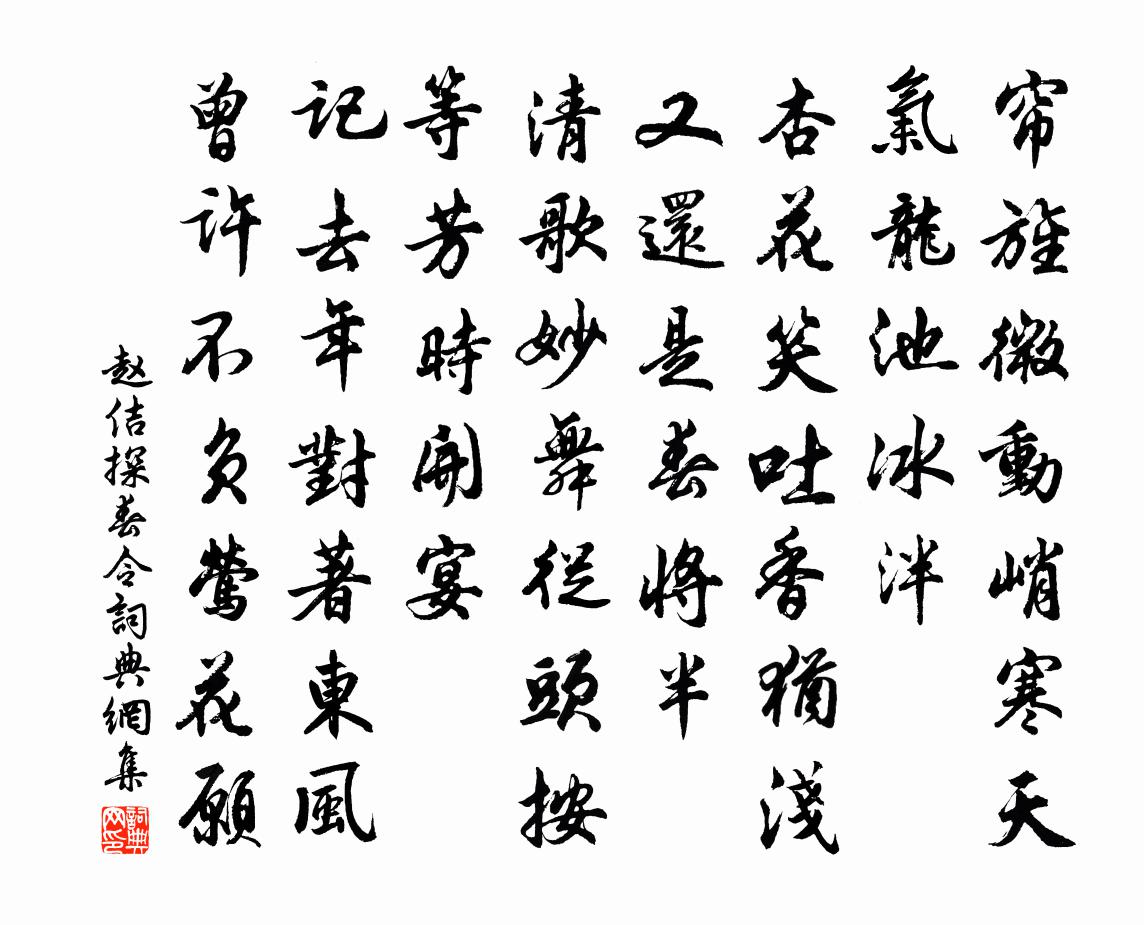 帘旌微動峭寒天
氣龍池冰泮
杏花笑吐香猶淺
又還是春將半
清歌妙舞從頭按
等芳時開宴
記去年對著東風
曾許不負鶯花願
赵佶探春令詞典網集
詞典网印